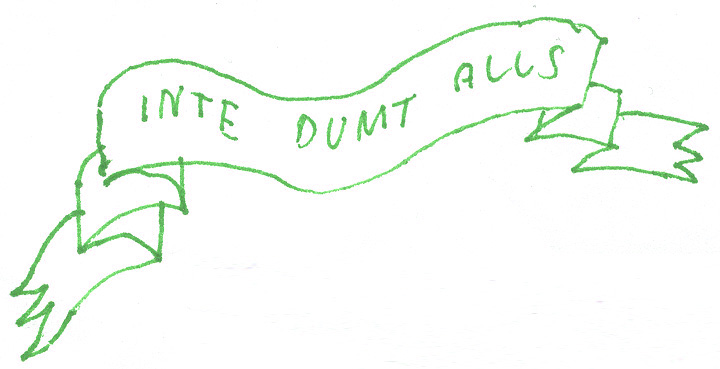 INTE DUMT ALLS